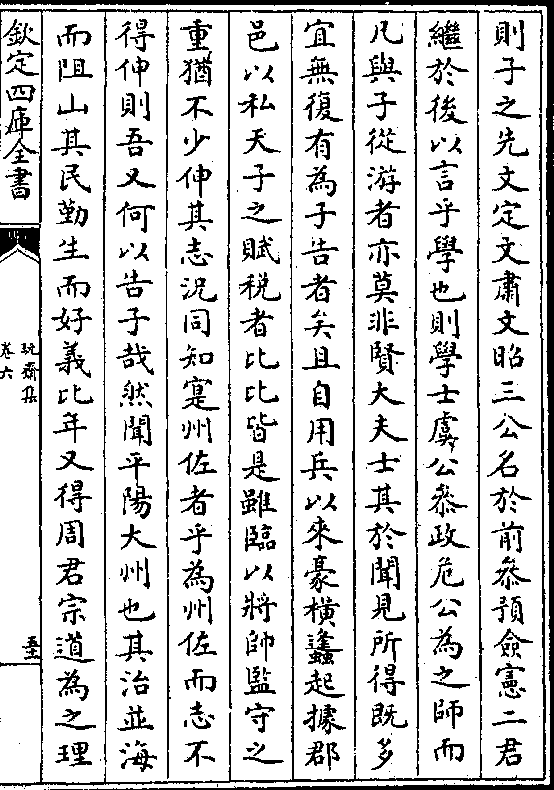 則子之先文定文肅文昭三公名於前叅預僉憲二君
繼於後以言乎學也則學士虞公叅政危公為之師而
凡與子從游者亦莫非賢大夫士其於聞見所得既多
宜無復有為子告者矣且自用兵以來豪橫蠭起據郡
邑以私天子之賦税者比比皆是雖臨以將帥監守之
重猶不少伸其志況同知寔州佐者乎為州佐而志不
得伸則吾又何以告子哉然聞平陽大州也其治並海
而阻山其民勤生而好義比年又得周君宗道為之理
欽定四庫全書
玩齋集
卷六